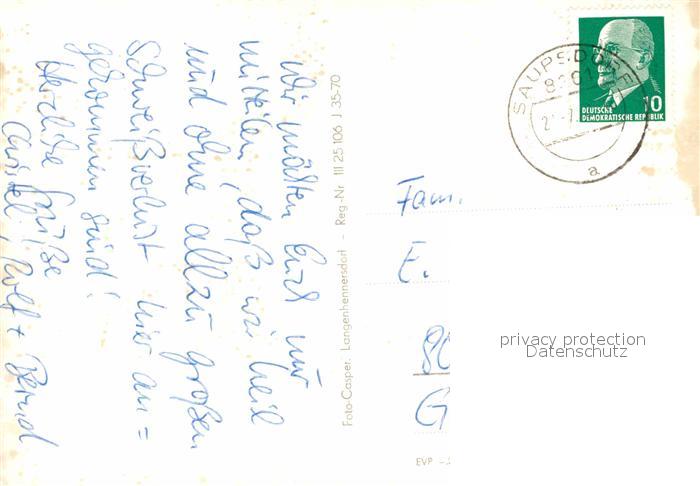 Wir möchten Euch nur
mitteilen, daß wir heil
und ohne allzu großen
Schweißverlust hier an=
gekommen sind!
Herzliche Grüße
Christel, Rolf + Bernd
Foto-Casper, Langenhennersdorf - Reg.-Nr III 25 106 J 35-70
SAUPSDORF
a
DEUTSCHE
DEMOKRATISCHE REPUBLIK
10
Fam.
E.
80
G
EVP
privacy protection
Datenschutz